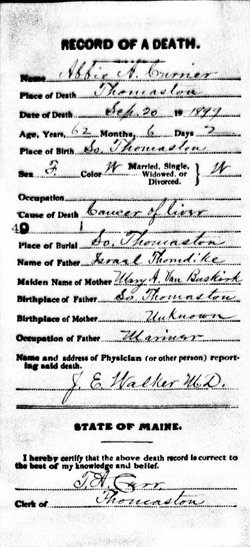 RECORD OF A DEATH.
Name, Abbie A. Currier
Place of Death Thomaston
Date of Death Sep. 20 1899
Age, Years, 62 Months, 6 Days 2
Place of Birth So. Thomaston
Sex F. Color W Married, Single, Widowed, or Divorced. } W
Occupation
Cause of Death Cancer of liver
Place of Burial So. Thomaston
Name of Father Israel Thorndike
Maiden Name of Mother Mary A. Van Buskirk
Birthplace of Father So. Thomaston
Birthplace of Mother Unknown
Occupation of Father Mariner
Name and address of Physician (or other person) report-
ing said death.
J. E. Walker M.D.
STATE OF MAINE.
I hereby certify that the above death record is correct to
the best of my knowledge and belief.
Carr
Clerk of Thomaston